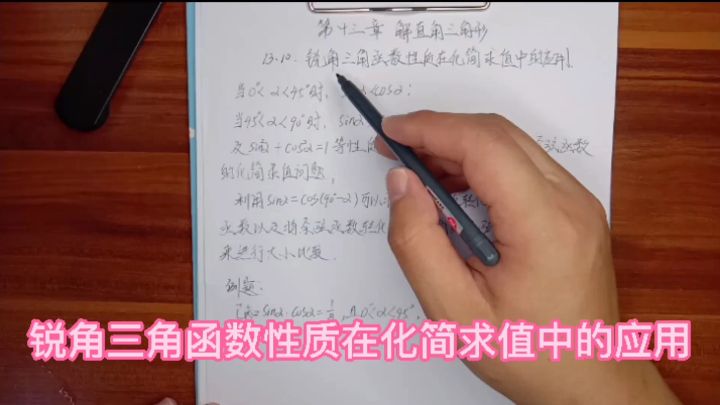 第十三章 解直角三角形
13.10. 锐角三角函数性质在化简求值中的应用
当0°<α<45°时, <cosα;
当45°<α<90°时, sinα
及sin²α+cos²α=1等性 函数
的化简求值问题。
利用sinα=cos(90°-α)可以
函数以及将余弦函数转化
来进行大小比较.
例题:
sinα·cosα= 且0°<α<45°,
锐角三角函数性质在化简求值中的应用